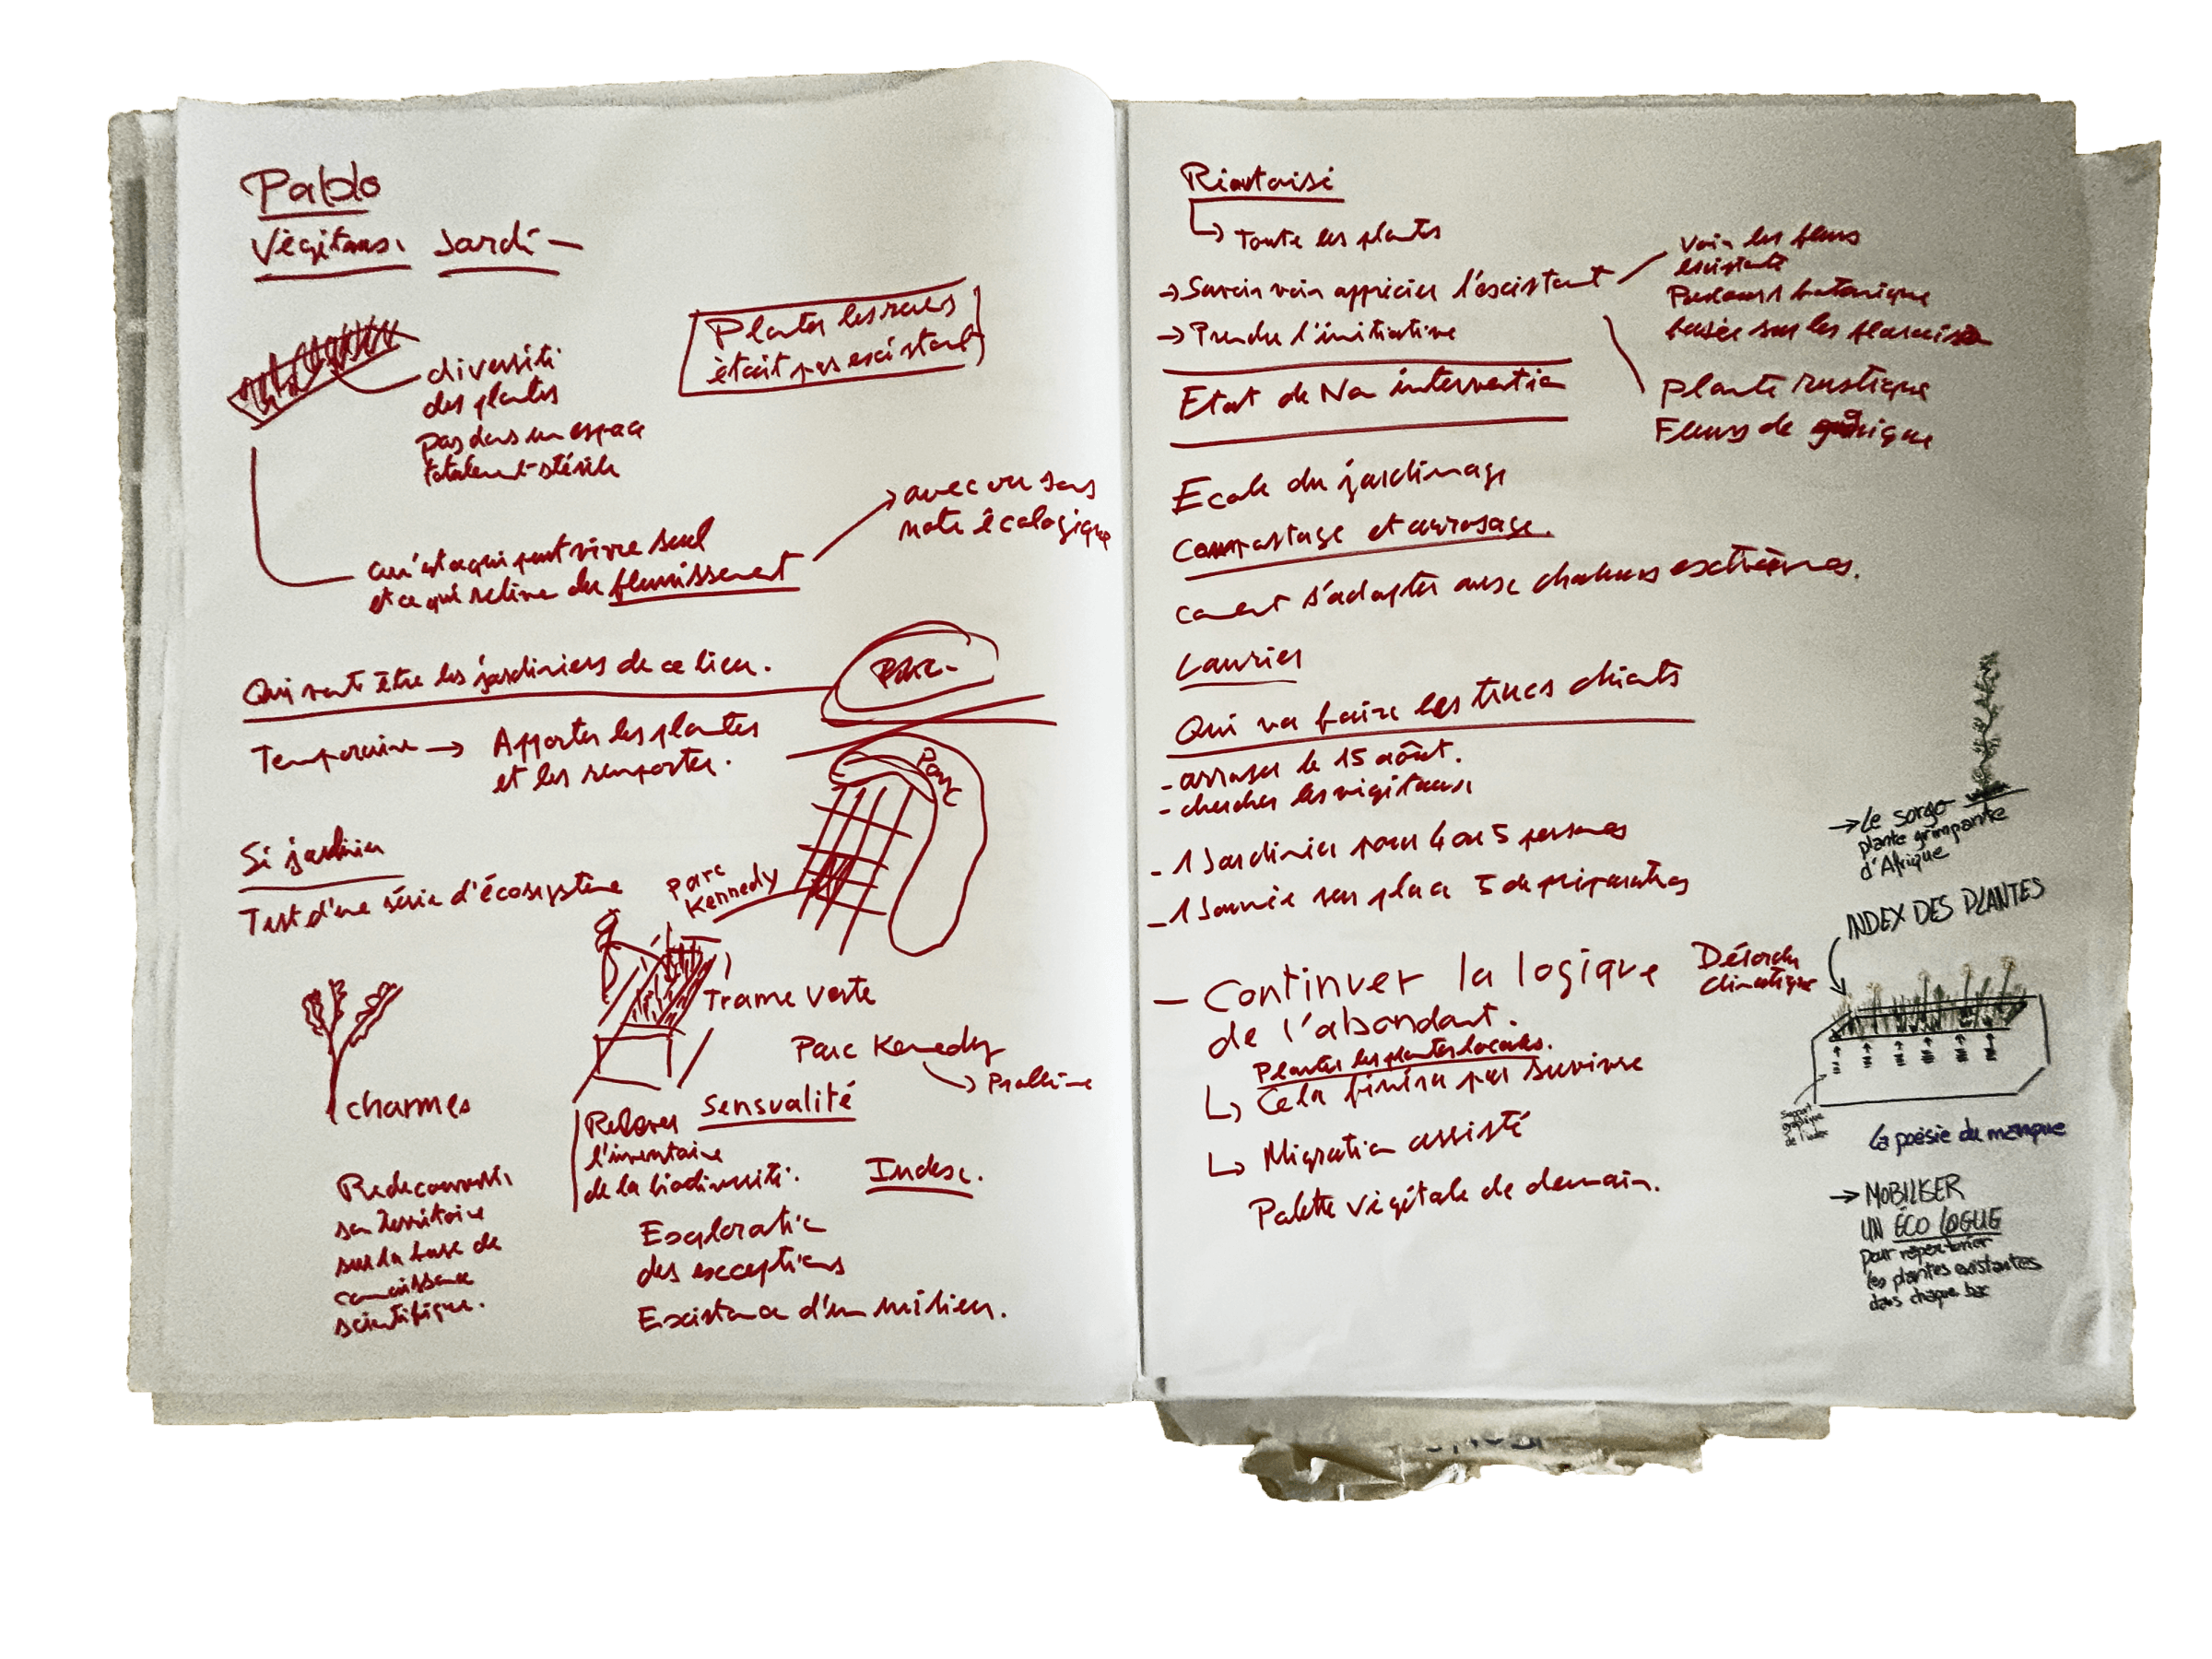 Pablo
Végétaux Jardin
Planter les rues
était pas existant
diversité
des plantes
pas dans un espace
totalement stérile
avec ou sans
note écologique
qu'est ce qui peut vivre seul
et ce qui relève du fleurissement
Qui vont être les jardiniers de ce lieu.
Parc
Temporaire → Apporter les plantes
et les remporter.
Parc
Si jardin
Test d'une série d'écosystème
Parc
Kennedy
Trame verte
Parc Kennedy
Problème
charmes
Relever Sensualité
l'inventaire
de la biodiversité.
Index.
Redécouvrir
son territoire
sur la base de
connaissance
scientifique.
Exploration
des exceptions
Existence d'un milieu.
Toute les plantes
→ Savoir voir apprécier l'existant
→ Prendre l'initiative
Voir les fleurs
existante
Parcours botanique
basée sur les floraison
Plante rustique
Fleurs de
Etat de Non intervention
Ecole du jardinage
Compostage et arrosage.
comment s'adapter aux chaleurs extrêmes.
Laurier
Qui va faire les trucs chiants
- arroser le 15 août.
- chercher les végétaux
- 1 Jardinier pour 4 ou 5 personnes
- 1 Journée sur place 5 de préparation
→ Le sorgo
plante grimpante
d'Afrique
INDEX DES PLANTES
— Continuer la logique
de l'abondant.
Désordre
climatique
Planter les plantes locales.
Cela finira par survivre
Migration assisté
Palette végétale de demain.
Support
graphique
de l'index
La poésie du manque
→ MOBILISER
UN ÉCOLOGUE
pour répertorier
les plantes existantes
dans chaque bac